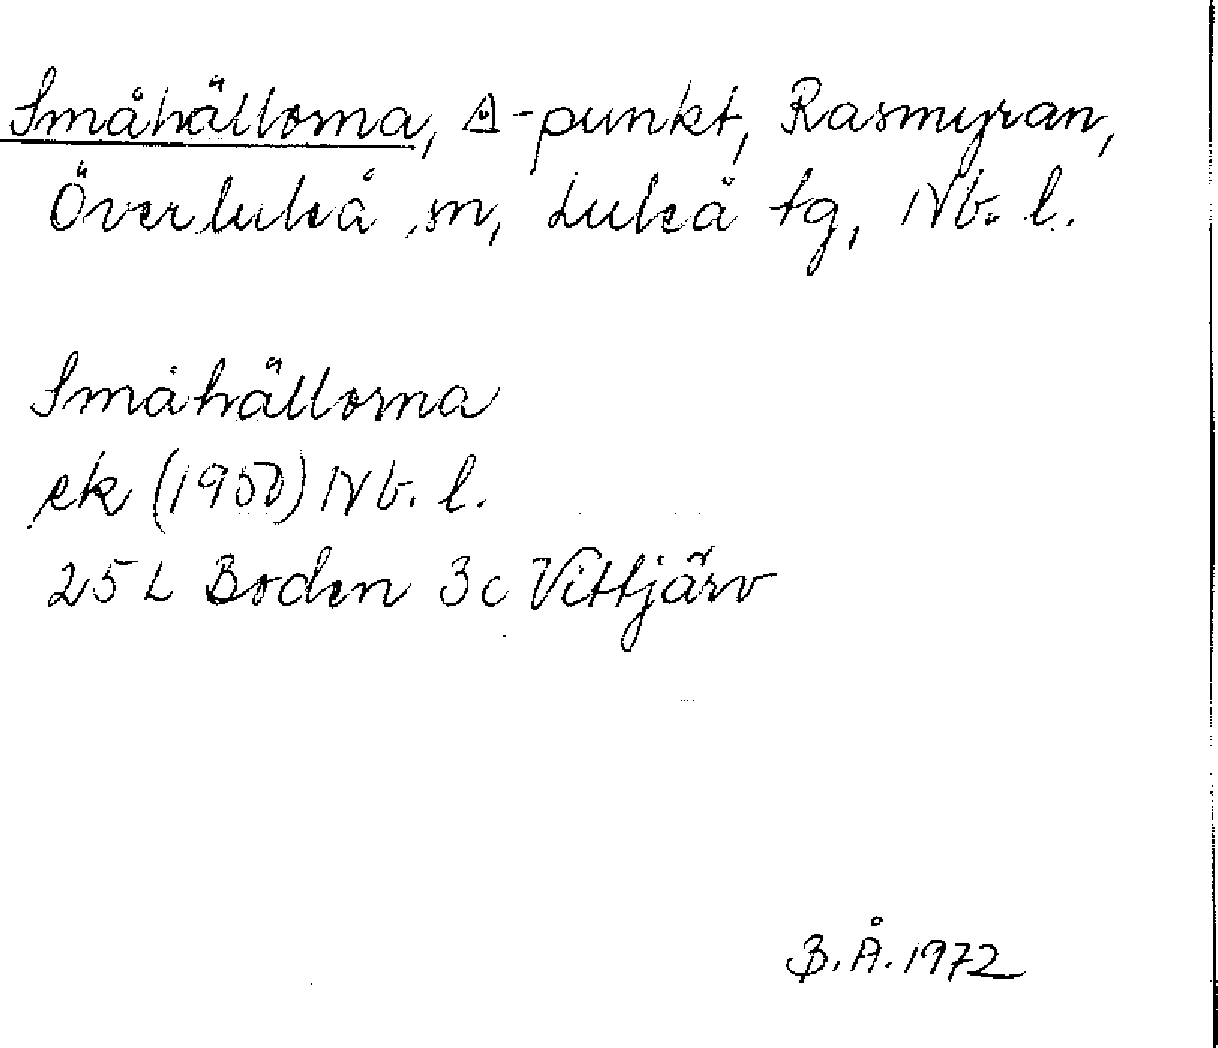 Småhällorna, △-punkt, Rasmyran,
Överluleå sn, Luleå tg, Nb. l.
Småhällorna
ek (1950) Nb. l.
25 L Boden 3c Vittjärv
B.Å. 1972